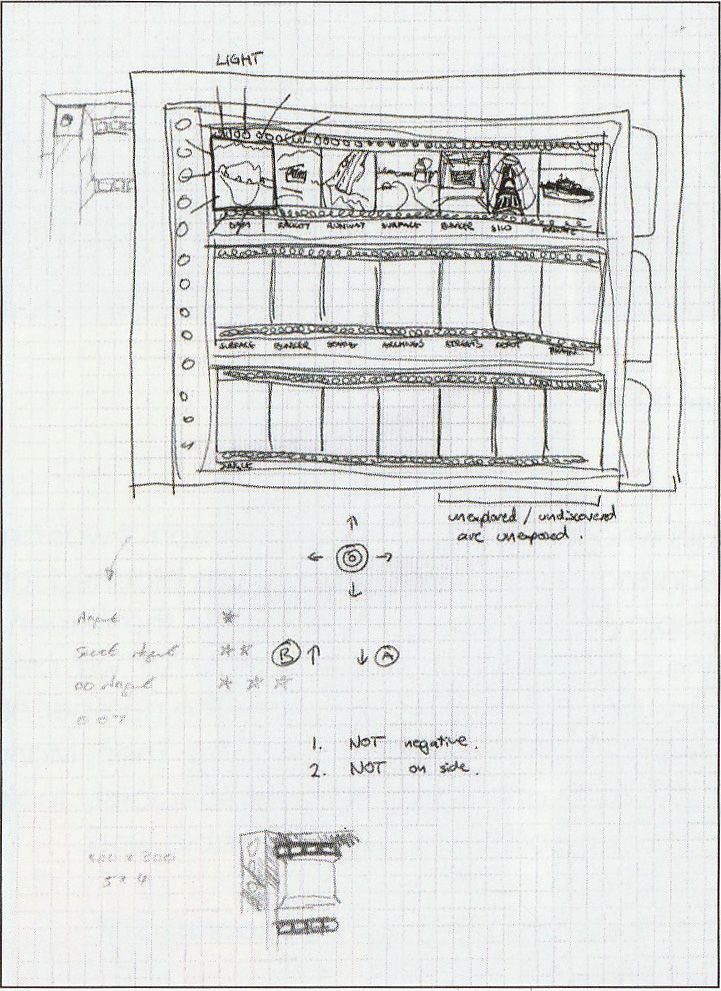 LIGHT
DAM FACILITY RUNWAY SURFACE BUNKER SILO FRIGATE
SURFACE BUNKER STATUE ARCHIVES STREETS DEPOT TRAIN
JUNGLE
unexplored / undiscovered
are unexposed.
Agent
Secret Agent
00 Agent
007
B A
1. NOT negative.
2. NOT on side.
5 x 4